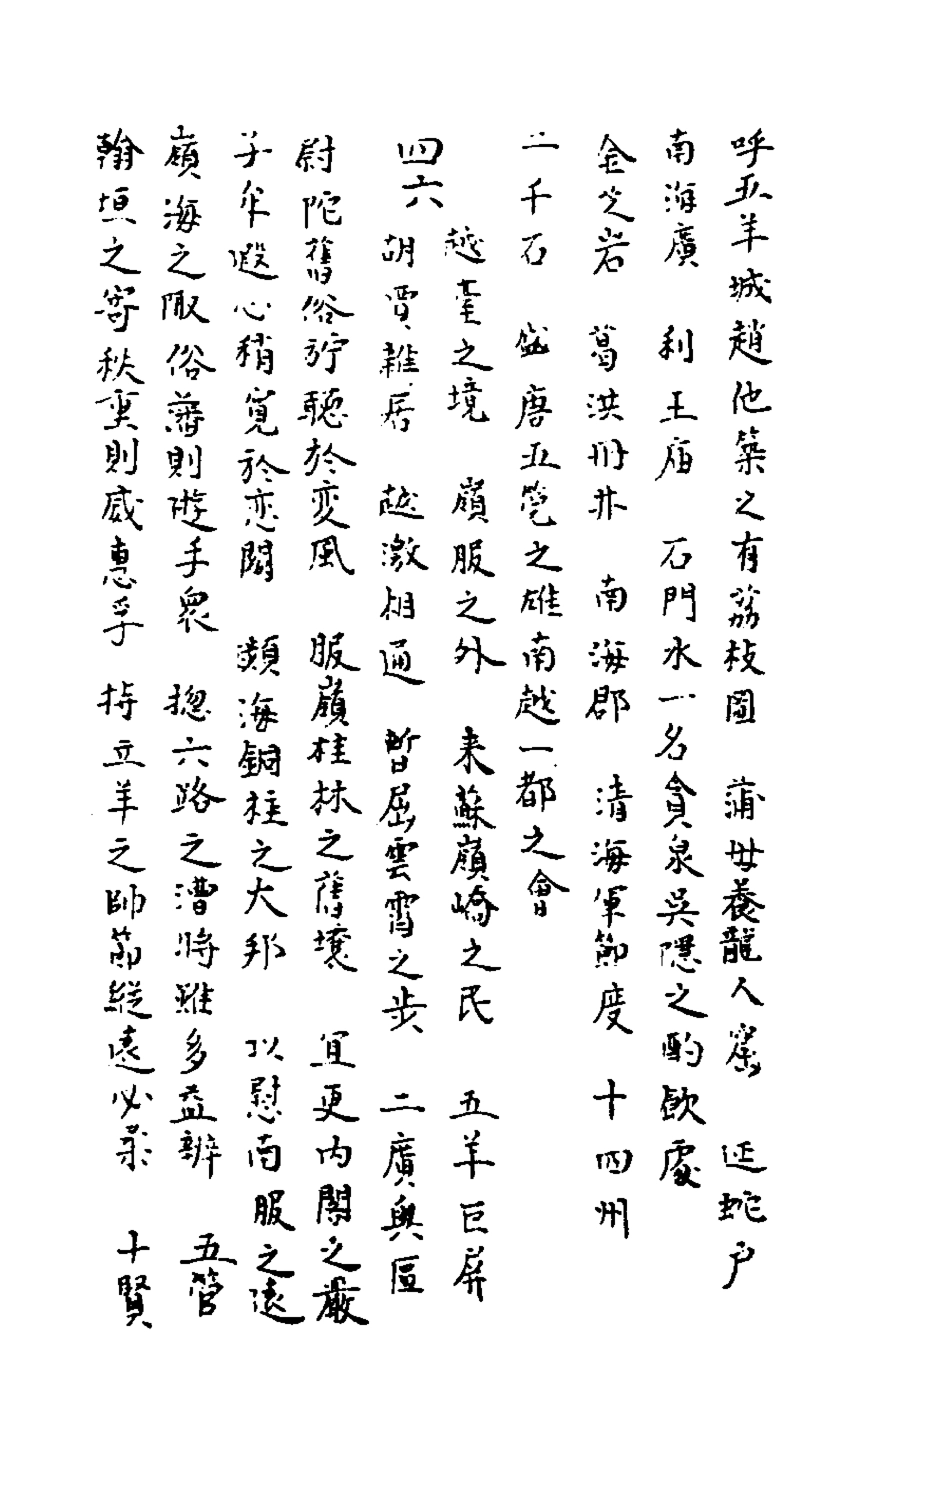 呼五羊城趙他築之有荔枝圖　蒲毋養龍人窟　延蛇户
南海廣　利王庙　石門水一名貪泉吳隱之酌飲處
金芝岩　葛洪丹井　南海郡　清海軍節度　十四州
二千石　盛唐五筦之雄南越一都之會
四六
越臺之境　嶺服之外　来蘇嶺嶠之民　五羊巨屏
胡賈雜居　越激相通　暫屈雲霄之步　二廣奥區
尉陀舊俗聽於变風　服嶺桂林之舊壤　宜更内閣之嚴
子牟遐心稍寛於恋闕　頻海銅柱之大邦　以慰南服之遠
嶺海之陬俗薄則遊手衆　揔六路之漕將雖多益辨　五管
翰垣之寄秩重則威惠孚　持五羊之帥節縱遠必柔　十賢